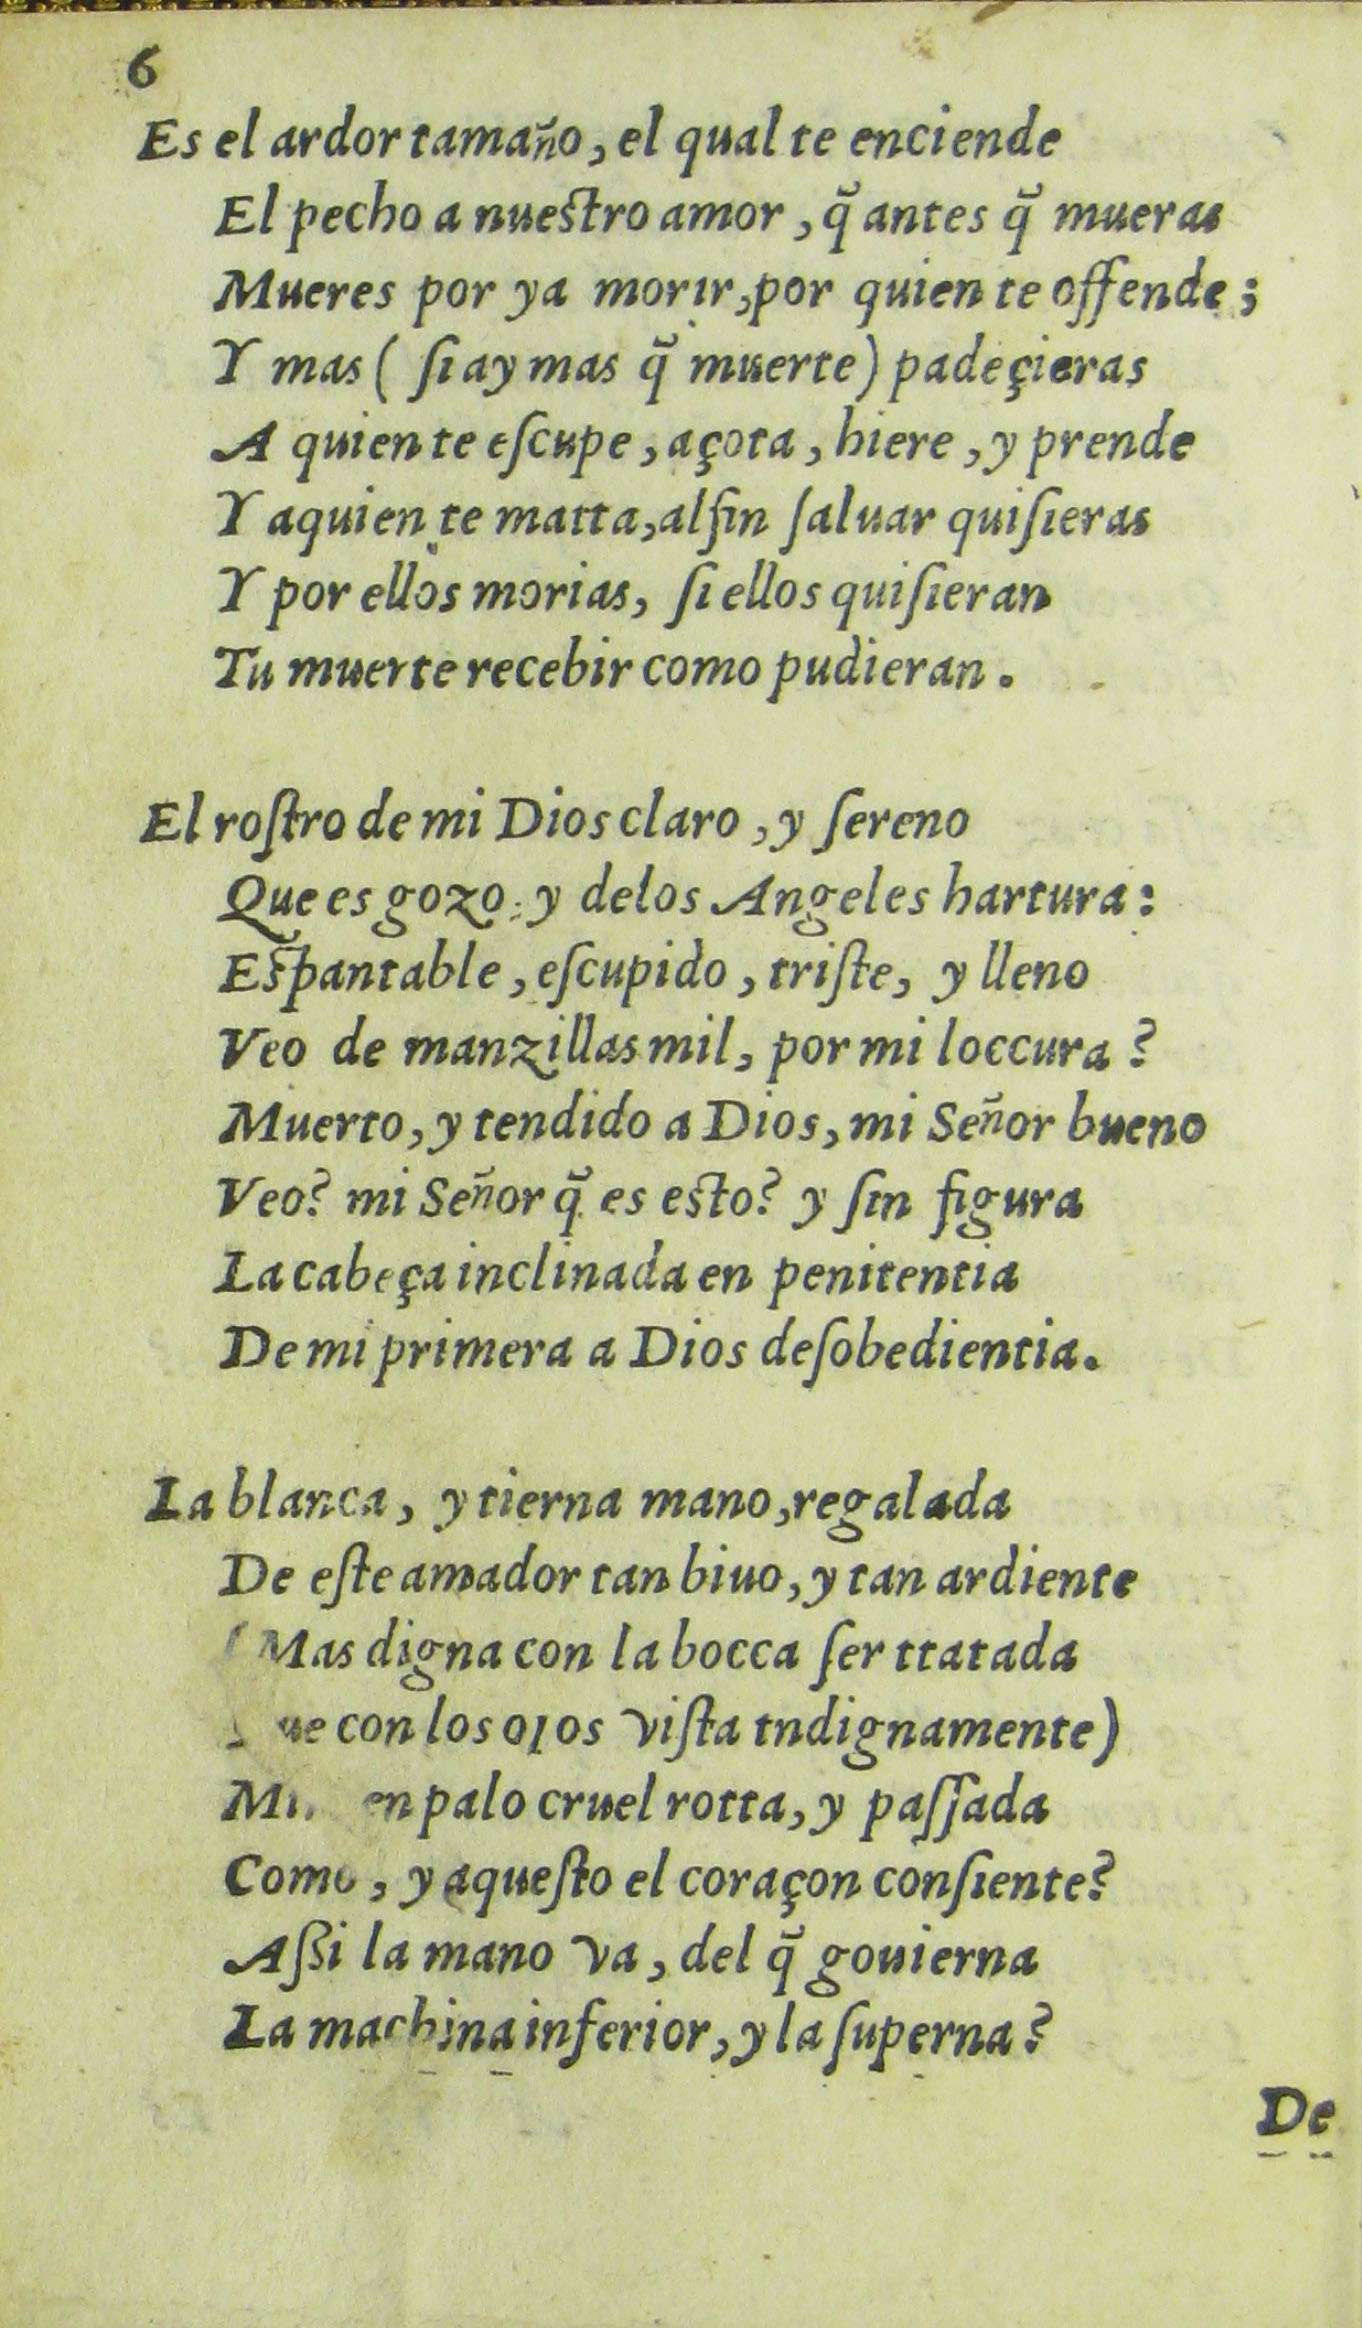 6
Es el ardor tamaño, el qual te enciende
El pecho a nuestro amor, q̃ antes q̃ mueras
Mueres por ya morir, por quien te offende;
Y mas ( ſi ay mas q̃ muerte) padeçieras
A quien te eſcupe, açota, hiere, y prende
Y aquien te matta, alfin ſaluar quiſieras
Y por ellos morias, ſi ellos quiſieran
Tu muerte recebir como pudieran.
El roſtro de mi Dios claro, y ſereno
Que es gozo: y delos Angeles hartura:
Espantable, eſcupido, triſte, y lleno
Veo de manzillas mil, por mi loccura?
Muerto, y tendido a Dios, mi Señor bueno
Veo? mi Señor q̃ es esto? y ſin figura
La cabeça inclinada en penitentia
De mi primera a Dios deſobedientia.
La blanca, y tierna mano, regalada
De eſte amador tan biuo, y tan ardiente
(Mas digna con la bocca ſer ttatada
con los oıos viſta tndignamente)
en palo cruel rotta, y paſſada
Como, y aqueſto el coraçon conſiente?
Aſſi la mano va, del q̃ gouierna
La machina inferior, y la ſuperna?
De